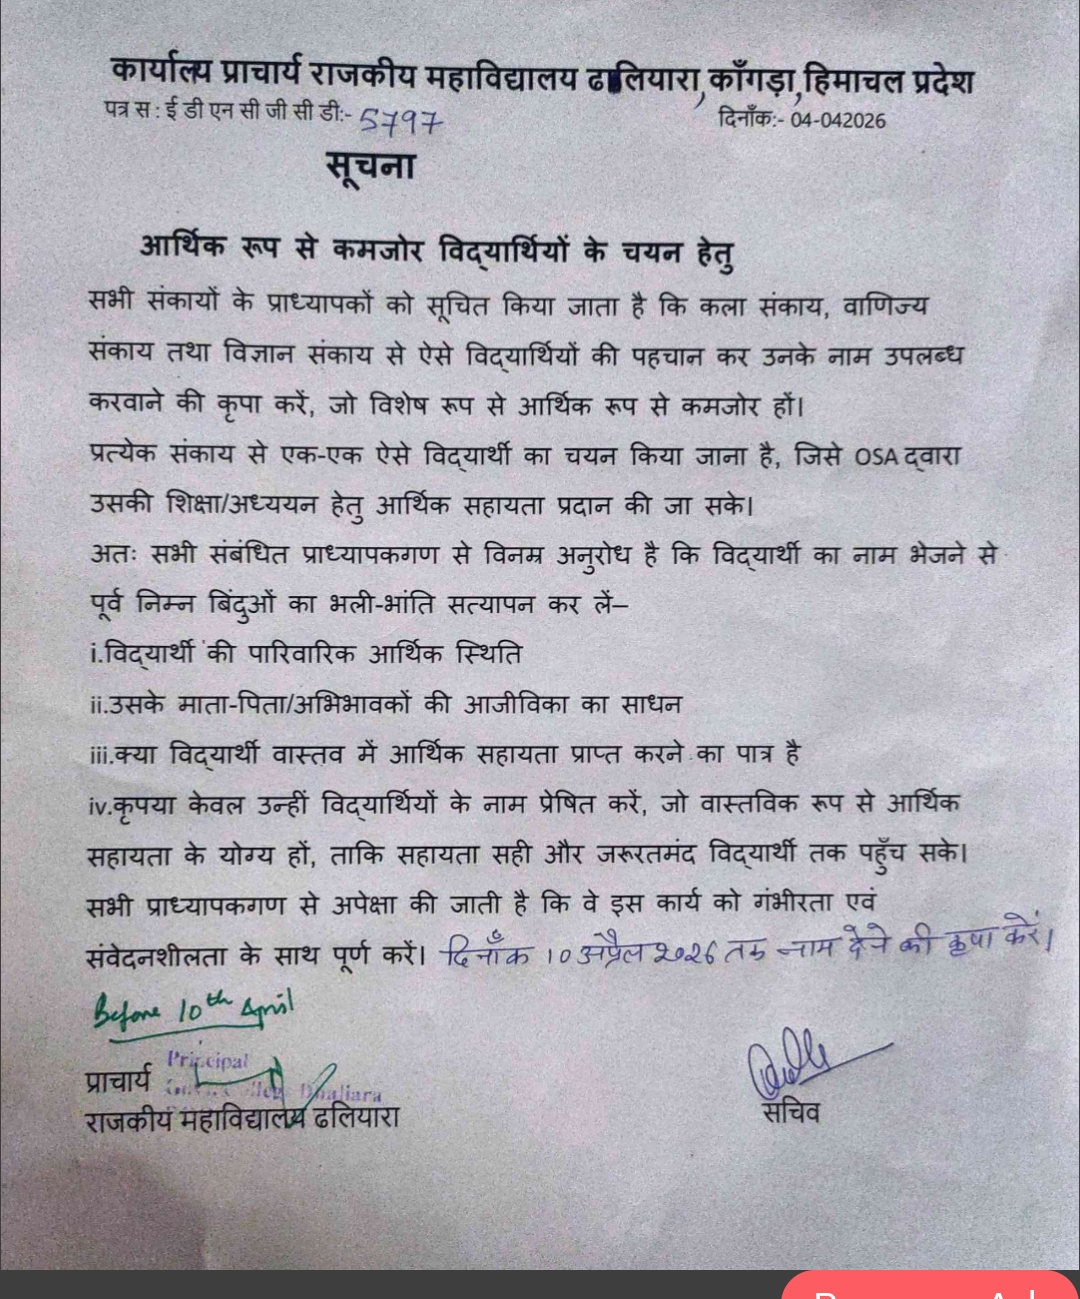 कार्यालय प्राचार्य राजकीय महाविद्यालय ढलियारा,काँगड़ा,हिमाचल प्रदेश
पत्र स : ई डी एन सी जी सी डी:- 5797
दिनाँक:- 04-042026
सूचना
आर्थिक रूप से कमजोर विद्यार्थियों के चयन हेतु
सभी संकायों के प्राध्यापकों को सूचित किया जाता है कि कला संकाय, वाणिज्य
संकाय तथा विज्ञान संकाय से ऐसे विद्यार्थियों की पहचान कर उनके नाम उपलब्ध
करवाने की कृपा करें, जो विशेष रूप से आर्थिक रूप से कमजोर हों।
प्रत्येक संकाय से एक-एक ऐसे विद्यार्थी का चयन किया जाना है, जिसे OSA द्वारा
उसकी शिक्षा/अध्ययन हेतु आर्थिक सहायता प्रदान की जा सके।
अतः सभी संबंधित प्राध्यापकगण से विनम्र अनुरोध है कि विद्यार्थी का नाम भेजने से
पूर्व निम्न बिंदुओं का भली-भांति सत्यापन कर लें–
i.विद्यार्थी की पारिवारिक आर्थिक स्थिति
ii.उसके माता-पिता/अभिभावकों की आजीविका का साधन
iii.क्या विद्यार्थी वास्तव में आर्थिक सहायता प्राप्त करने का पात्र है
iv.कृपया केवल उन्हीं विद्यार्थियों के नाम प्रेषित करें, जो वास्तविक रूप से आर्थिक
सहायता के योग्य हों, ताकि सहायता सही और जरूरतमंद विद्यार्थी तक पहुँच सके।
सभी प्राध्यापकगण से अपेक्षा की जाती है कि वे इस कार्य को गंभीरता एवं
संवेदनशीलता के साथ पूर्ण करें। दिनाँक 10 अप्रैल 2026 तक नाम देने की कृपा करें।
Before 10th April
Principal
प्राचार्य
College Dhaliara
राजकीय महाविद्यालय ढलियारा
सचिव